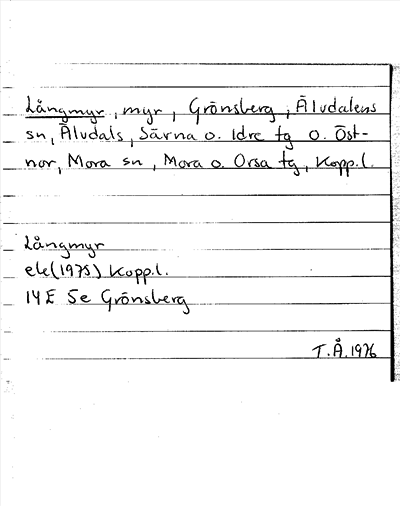 Långmyr, myr, Grönsberg, Älvdalens
sn, Älvdals, Särna o. Idre tg o. Öst-
nor, Mora sn, Mora o. Orsa tg, Kopp.l.
Långmyr
ek(1975) Kopp.l.
14E 5e Grönsberg
T.Å.1976